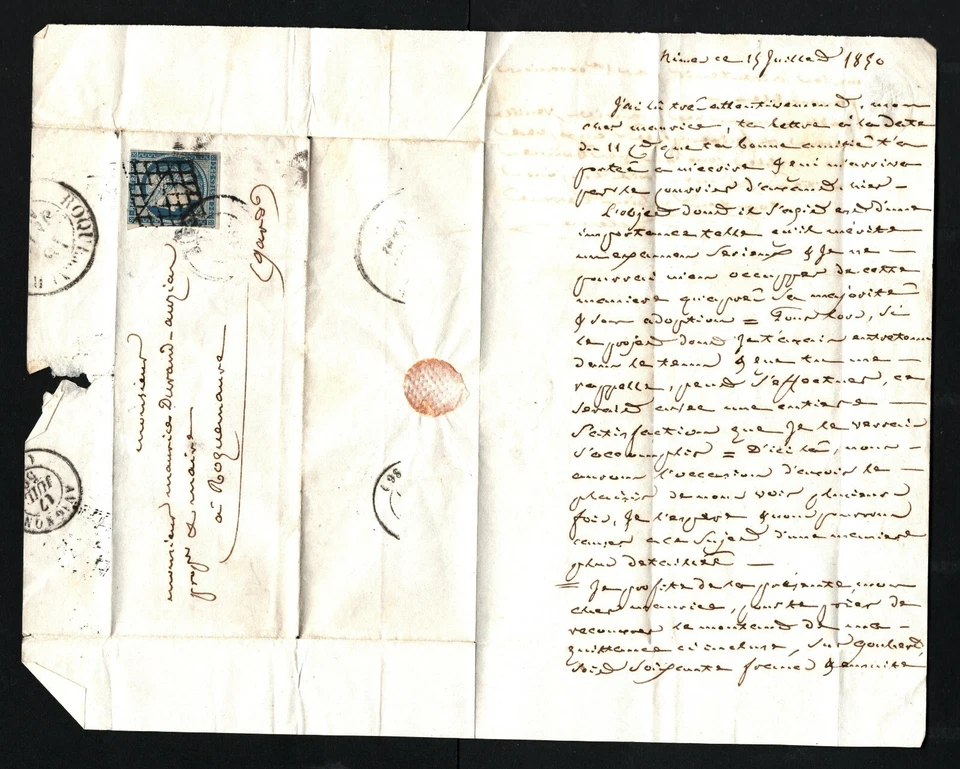 Nimes ce 15 Juillet 1850
J'ai lu très attentivement, mon
cher maurice, ta lettre à la date
du 11 Ct que ta bonne amitié t'a
porté a m'écrire & qui m'arriva
par le courrier d'avant hier —
L'objet dont il s'agit est d'une
importance telle qu'il mérite
un examen Serieux & Je ne —
pourrai m'en occupper de cette
maniere qu'après Sa majorité
& Son adoption = Toutefois, Si
le projet dont Je t'écrivis
dans le tems & que tu me —
rappelle, peut S'effectuer, ce
Serait avec une entiere —
Satisfaction que Je le verrais
S'accomplir = D'ici là, nous —
aurons l'occasion d'avoir le —
plaisir de nous voir plusieurs
fois, Je l'espere & nous pourrons
causer a ce Sujet d'une maniere
plus detaillée —
= Je profite de la présente, mon
cher maurice, pour te prier de
recouvrer le montant de ma —
quittance ci incluse, Sur Goubert,
Soit Soixante francs & ensuite
monsieur
monsieur maurice Durand-auzias
propre & maire
à Roquemaure
(Gard)
ROQUEM
AVIGNON
17
JUIL
50